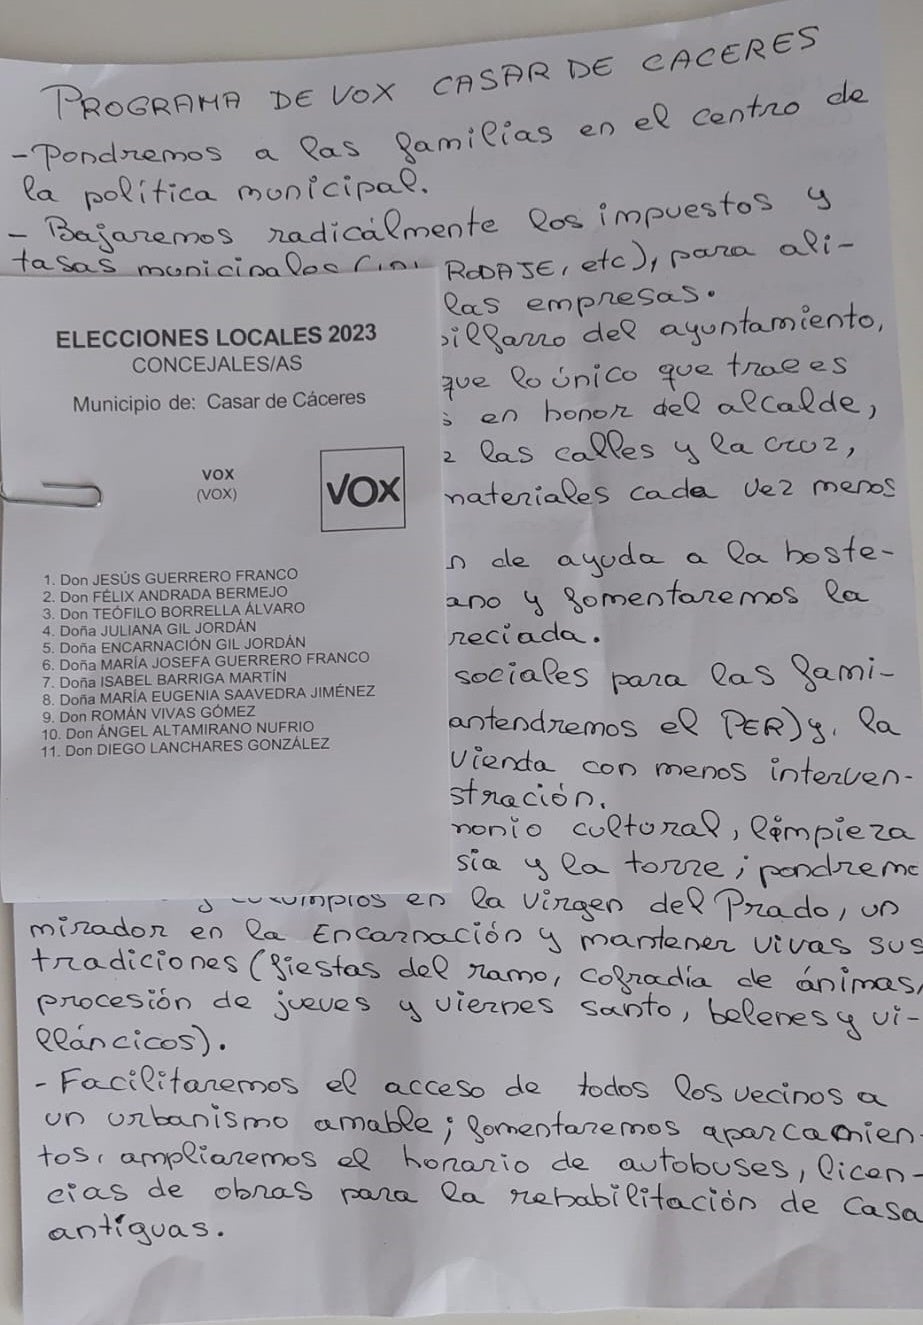 PROGRAMA DE VOX CASAR DE CACERES
- Pondremos a las familias en el centro de
la política municipal.
- Bajaremos radicálmente los impuestos y
tasas municipales RODAJE, etc), para ali-
las empresas.
del ayuntamiento,
que lo único que trae es
en honor del alcalde,
las calles y la cruz,
materiales cada vez menos
de ayuda a la hoste-
y fomentaremos la
sociales para las fami-
el PER) y, la
con menos interven-
cultural, limpieza
y la torre; pondremo
en la virgen del Prado, un
mirador en la Encarnación y mantener vivas sus
tradiciones (fiestas del ramo, cofradía de ánimas,
procesión de jueves y viernes santo, belenes y vi-
lláncicos).
- Facilitaremos el acceso de todos los vecinos a
un urbanismo amable; fomentaremos aparcamien-
tos, ampliaremos el horario de autobuses, licen-
cias de obras para la rehabilitación de casa
antíguas.
ELECCIONES LOCALES 2023
CONCEJALES/AS
Municipio de: Casar de Cáceres
VOX
(VOX)
VOX
1. Don JESÚS GUERRERO FRANCO
2. Don FÉLIX ANDRADA BERMEJO
3. Don TEÓFILO BORRELLA ÁLVARO
4. Doña JULIANA GIL JORDÁN
5. Doña ENCARNACIÓN GIL JORDÁN
6. Doña MARÍA JOSEFA GUERRERO FRANCO
7. Doña ISABEL BARRIGA MARTÍN
8. Doña MARÍA EUGENIA SAAVEDRA JIMÉNEZ
9. Don ROMÁN VIVAS GÓMEZ
10. Don ÁNGEL ALTAMIRANO NUFRIO
11. Don DIEGO LANCHARES GONZÁLEZ